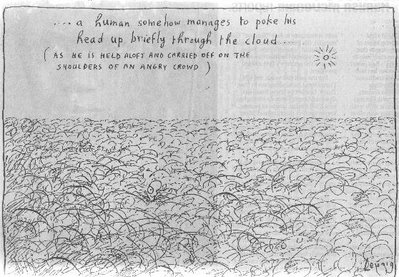 ....a human somehow manages to poke his
head up briefly through the cloud...
( AS HE IS HELD ALOFT AND CARRIED OFF ON THE
SHOULDERS OF AN ANGRY CROWD )
Leunig